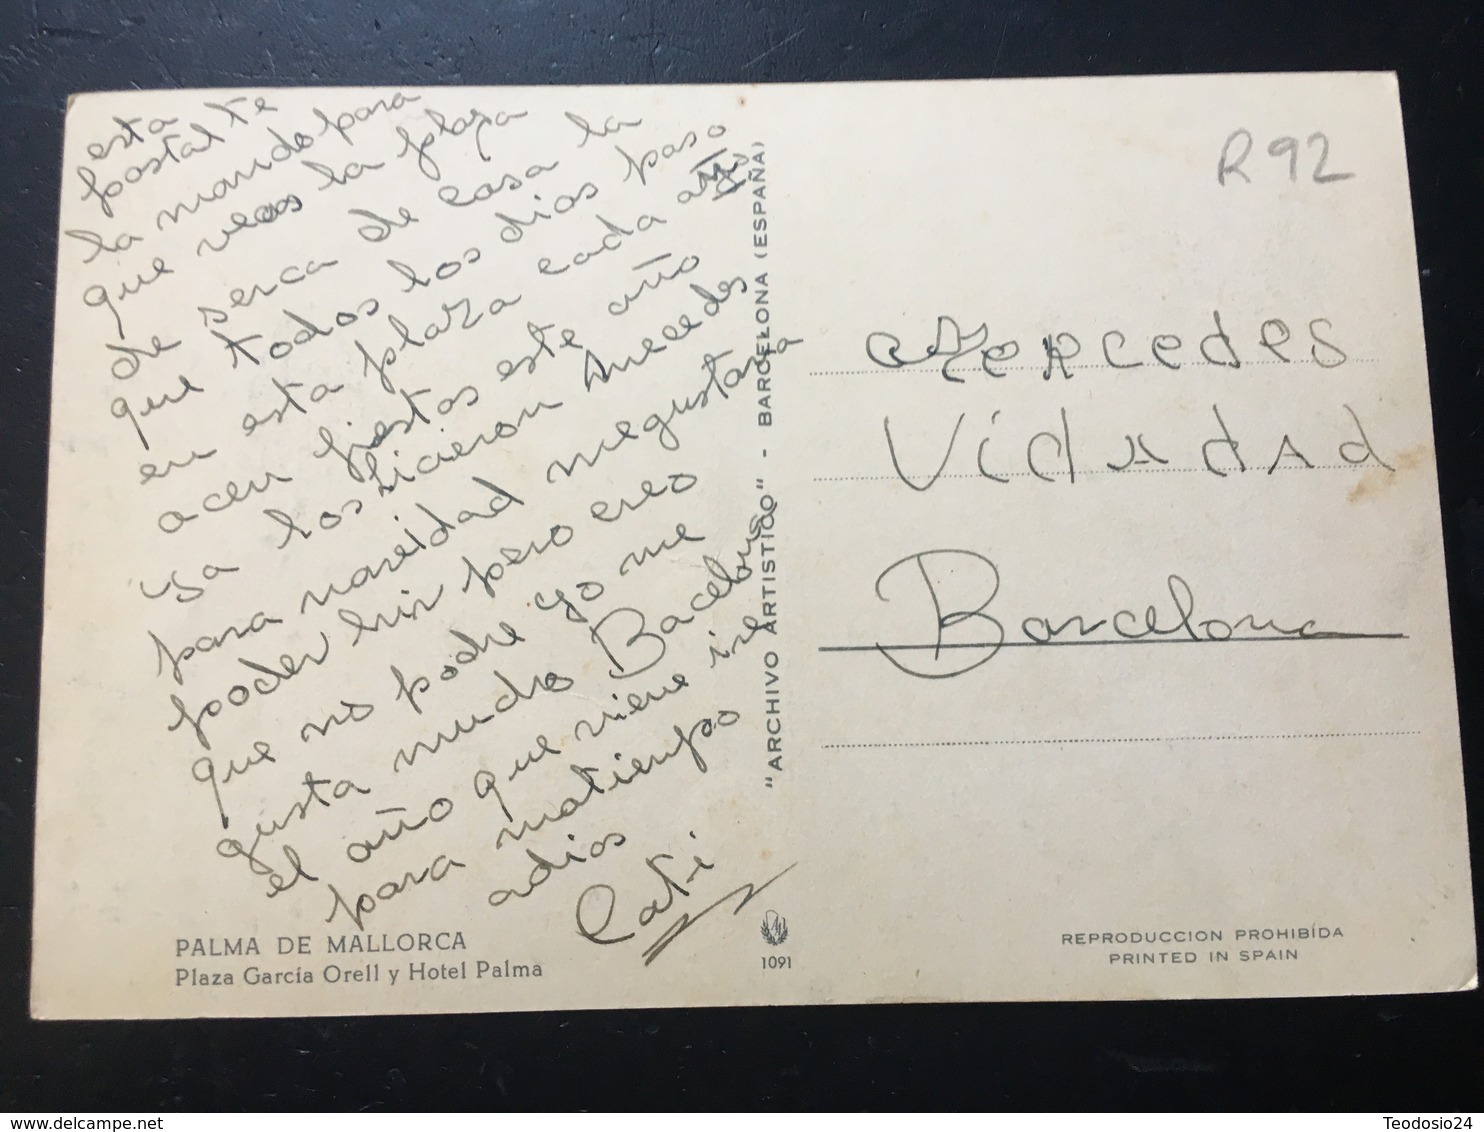 esta
postal te
la mando para
que veas la plaza
de serca de casa la
que todos los dias paso
en esta plaza cada año
acen fiestas este año
ya los icieron Mecedes
para naveidad megustaria
poder hir pero creo
que no podre yo me
gusta mucho Bacelona
el año que viene ire
para matiempo
adios
Cati
PALMA DE MALLORCA
Plaza García Orell y Hotel Palma
"ARCHIVO ARTISTICO" - BARCELONA (ESPAÑA)
1091
R92
Mercedes
Vidadad
Barcelona
REPRODUCCION PROHIBÍDA
PRINTED IN SPAIN
delcampe.net
Teodosio24